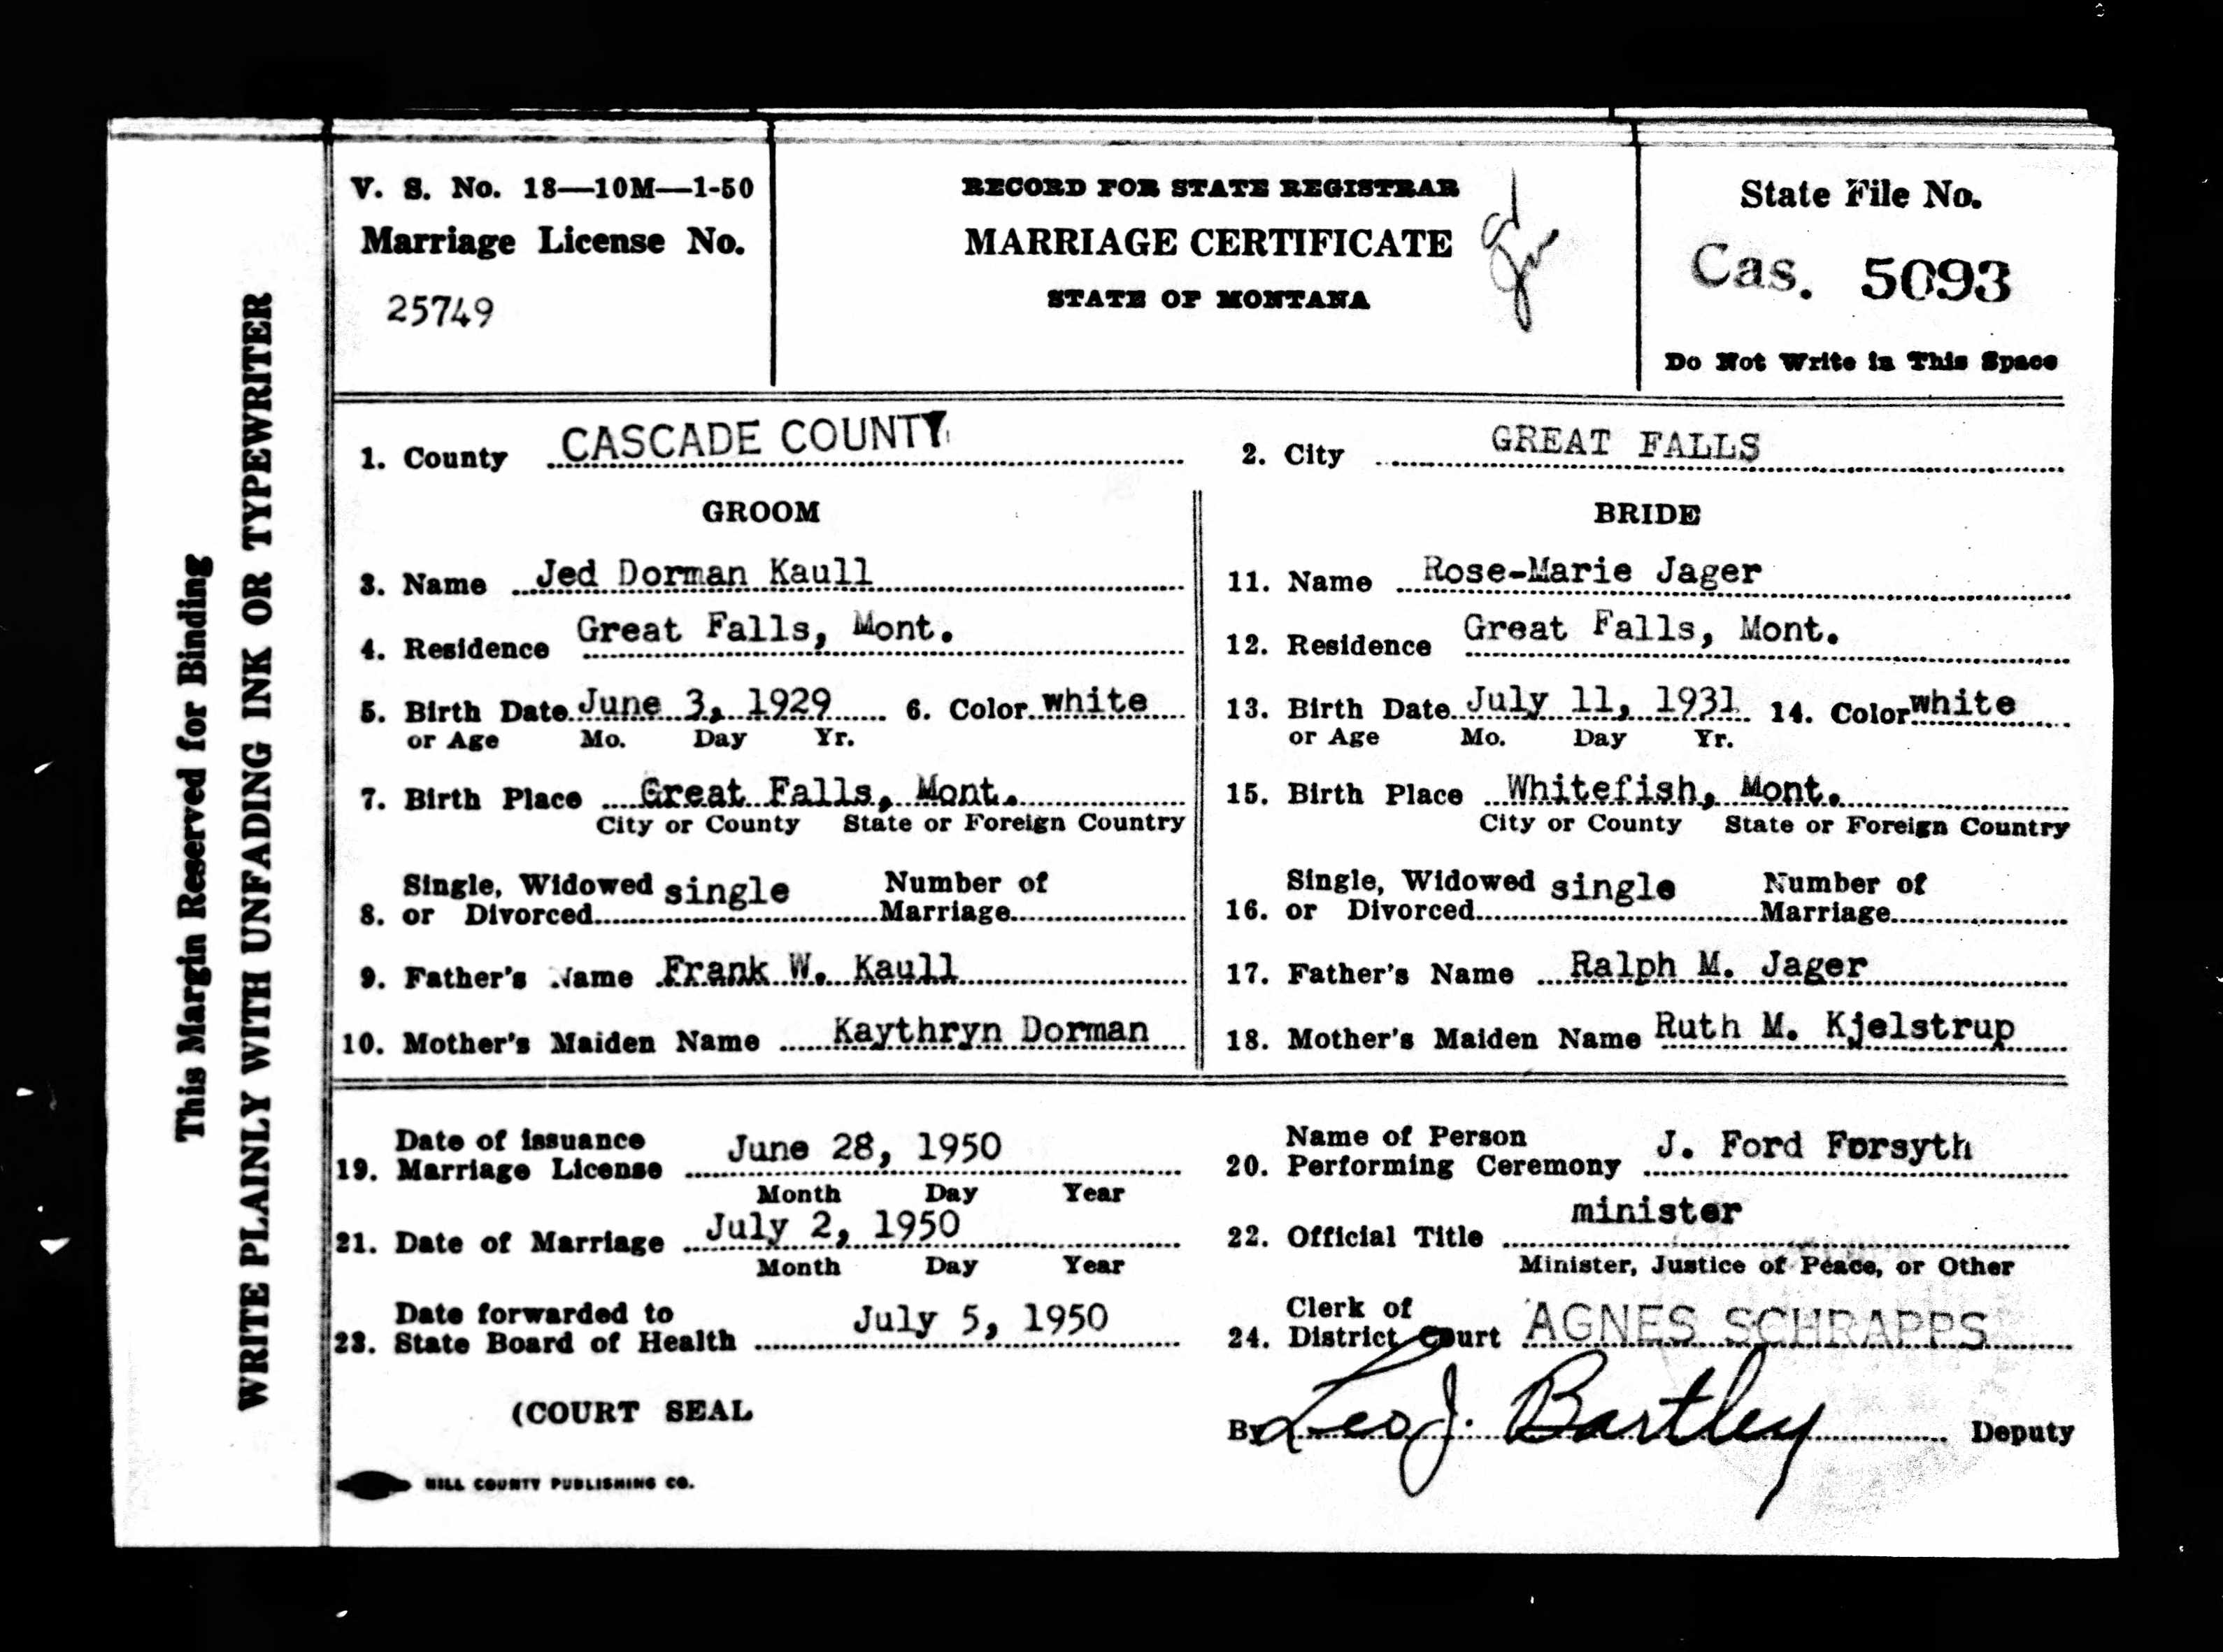 This Margin Reserved for Binding
WRITE PLAINLY WITH UNFADING INK OR TYPEWRITER
V. S. No. 18—10M—1-50
Marriage License No.
25749
RECORD FOR STATE REGISTRAR
MARRIAGE CERTIFICATE
STATE OF MONTANA
State File No.
Cas. 5093
Do Not Write in This Space
1. County CASCADE COUNTY
2. City GREAT FALLS
GROOM
3. Name Jed Dorman Kaull
4. Residence Great Falls, Mont.
5. Birth Date June 3, 1929 6. Color white
or Age Mo. Day Yr.
7. Birth Place Great Falls, Mont.
City or County State or Foreign Country
Single, Widowed single Number of
8. or Divorced Marriage
9. Father's Name Frank W. Kaull
10. Mother's Maiden Name Kaythryn Dorman
BRIDE
11. Name Rose-Marie Jager
12. Residence Great Falls, Mont.
13. Birth Date July 11, 1931 14. Color white
or Age Mo. Day Yr.
15. Birth Place Whitefish, Mont.
City or County State or Foreign Country
Single, Widowed single Number of
16. or Divorced Marriage
17. Father's Name Ralph M. Jager
18. Mother's Maiden Name Ruth M. Kjelstrup
Date of issuance June 28, 1950
19. Marriage License
Month Day Year
Name of Person J. Ford Forsyth
20. Performing Ceremony
21. Date of Marriage July 2, 1950
Month Day Year
22. Official Title minister
Minister, Justice of Peace, or Other
Date forwarded to July 5, 1950
23. State Board of Health
Clerk of
24. District Court AGNES SCHRAPPS
(COURT SEAL
By Leo J. Bartley Deputy
HILL COUNTY PUBLISHING CO.